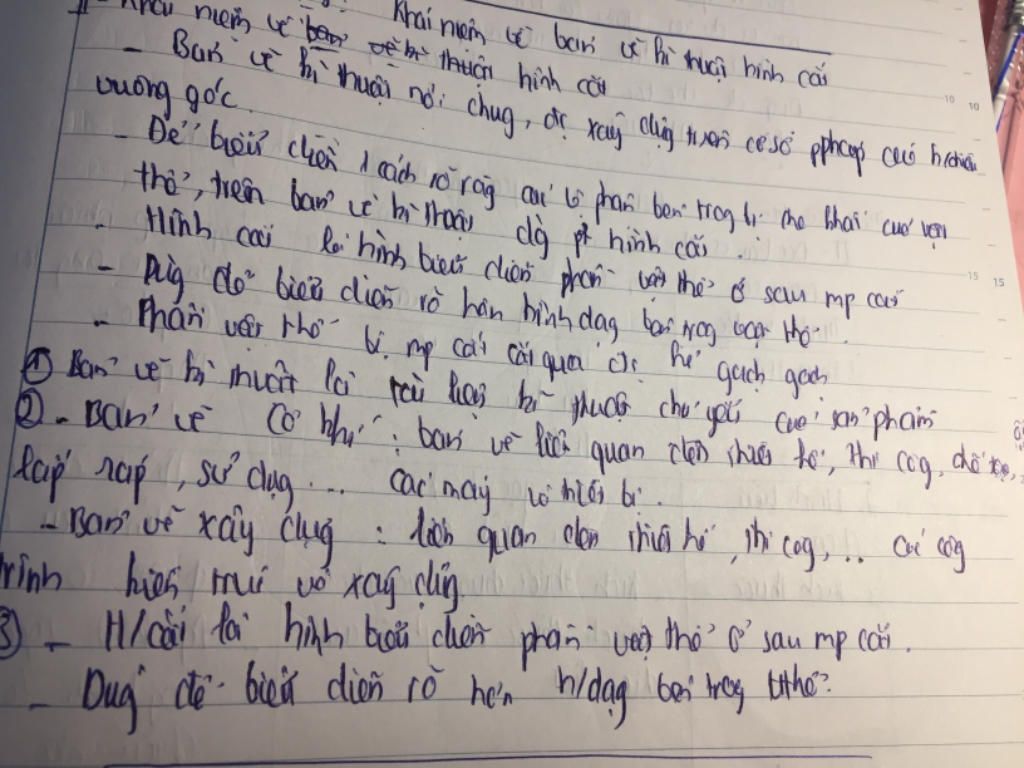 II - Khái niệm về bản vẽ kĩ thuật hình cắt Khái niệm về bản vẽ kĩ thuật hình cắt
- Bản vẽ kĩ thuật nói chug, đc xây dựg trên cơ sở pphcáp h/chiếu
vuông góc.
- Để biểu diễn 1 cách rõ ràg các bộ phận bên trog của vật
thể, trên bản vẽ kĩ thuật dg hình cắt.
- Hình cắt là hình biểu diễn phần vật thể ở sau mp cắt
- Dùg để biểu diễn rõ hơn hình dạg bên trog vật thể.
- Phần vật thể bị mp cắt cắt qua đc kẻ gạch gạch
① Bản vẽ kĩ thuật là tài liệu kĩ thuật chủ yếu của sản phẩm
② - Bản vẽ Cơ khí : bản vẽ liên quan đến thiết kế, thi côg, chế tạo,
lắp ráp, sử dụg ... các máy và thiết bị.
- Bản vẽ xây dựg : liên quan đến thiết kế, thi côg, .. các côg
trình kiến trúc và xây dựg
3) - H/cắt là hình biểu diễn phần vật thể ở sau mp cắt.
- Dug để biểu diễn rõ hơn h/dạg bên trog thể